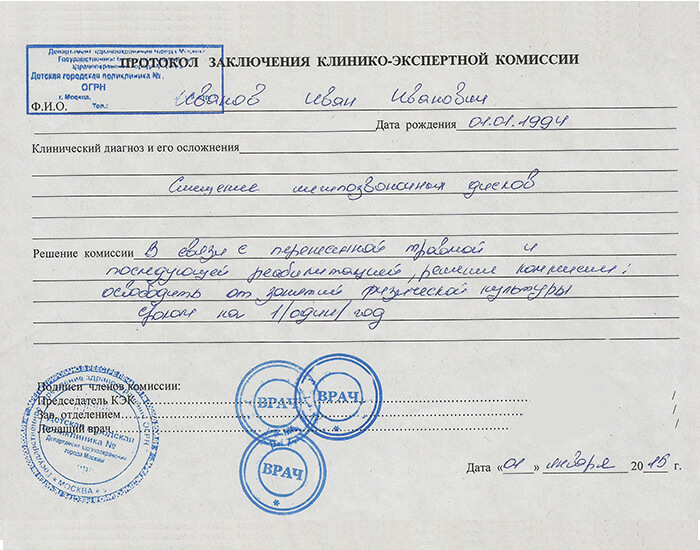 Департамент здравоохранения города Москвы
Государственное
здравоохранения города
Детская городская поликлиника №
ОГРН
г. Москва, Тел.:
ПРОТОКОЛ ЗАКЛЮЧЕНИЯ КЛИНИКО-ЭКСПЕРТНОЙ КОМИССИИ
Ф.И.О. Иванов Иван Иванович
Дата рождения 01.01.1994
Клинический диагноз и его осложнения
Смещение межпозвоночных дисков
Решение комиссии В связи с перенесенной травмой и
последующей реабилитацией, решение комиссии:
освободить от занятий физической культуры
сроком на 1/один/год
Подписи членов комиссии:
Председатель КЭК
Зав. отделением
Лечащий врач
ВРАЧ
ВРАЧ
ВРАЧ
Детская городская
поликлиника №
Департамент здравоохранения
города Москвы
МОСКВА
Дата «01» января 2015 г.